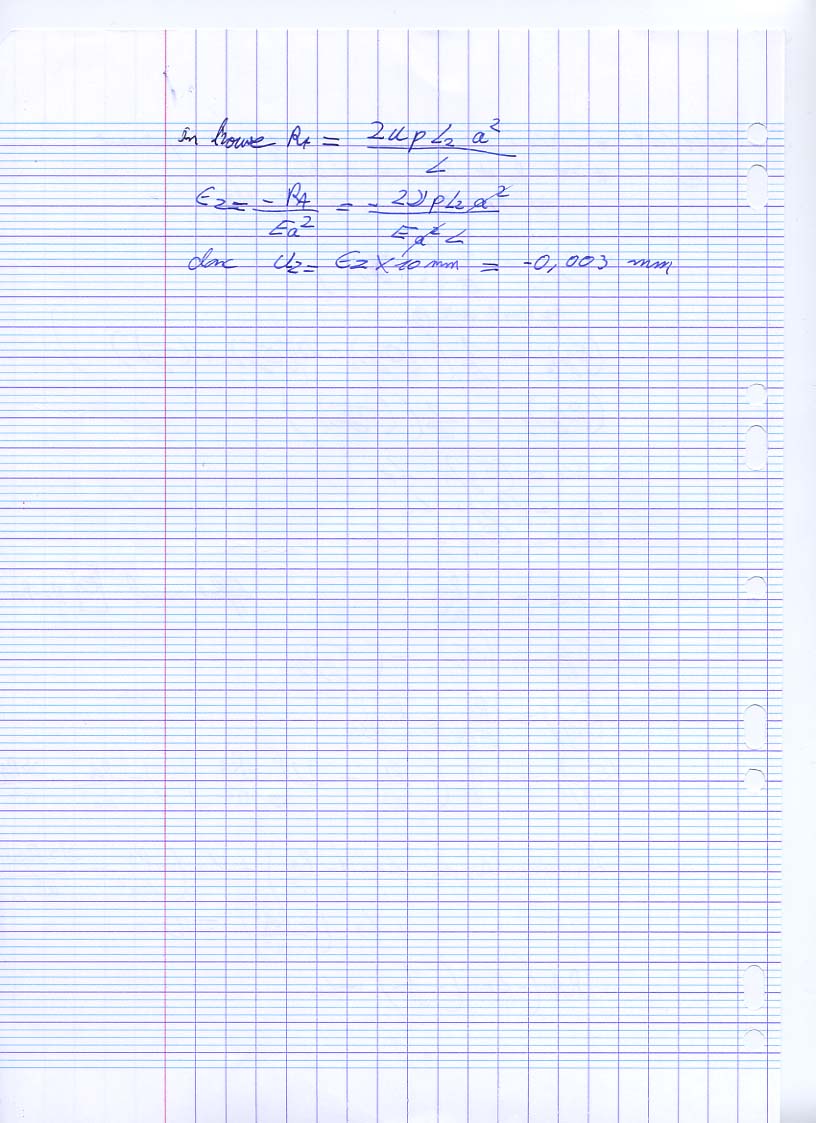 on trouve R_A = 2νpL₂a² / L
ε_z = -R_A / Ea² = - 2νpL₂a² / Ea²L
donc U_z = ε_z × 10 mm = -0,003 mm